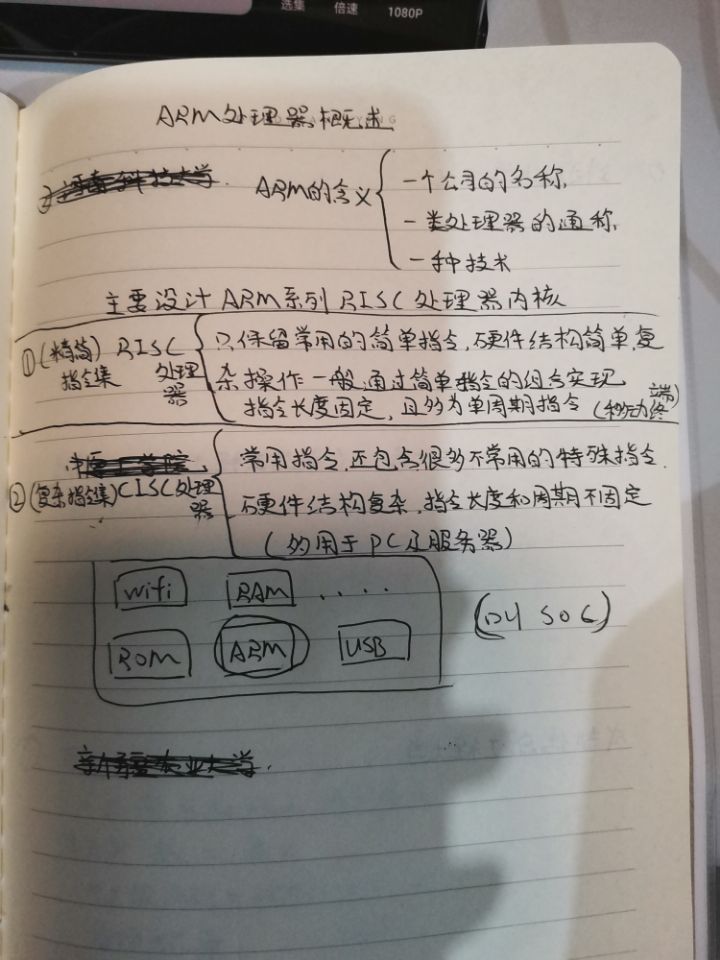 选集 倍速 1080P
ARM处理器概述
ARM的含义
一个公司的名称,
一类处理器的通称,
一种技术
主要设计ARM系列RISC处理器内核
①(精简)RISC
指令集 处理器
只保留常用的简单指令,硬件结构简单,复
杂操作一般通过简单指令的组合实现
指令长度固定,且多为单周期指令(移动终端)
②(复杂指令集)CISC处理器
常用指令,还包含很多不常用的特殊指令.
硬件结构复杂,指令长度和周期不固定
(多用于PC及服务器)
wifi RAM ....
ROM ARM USB
SOC